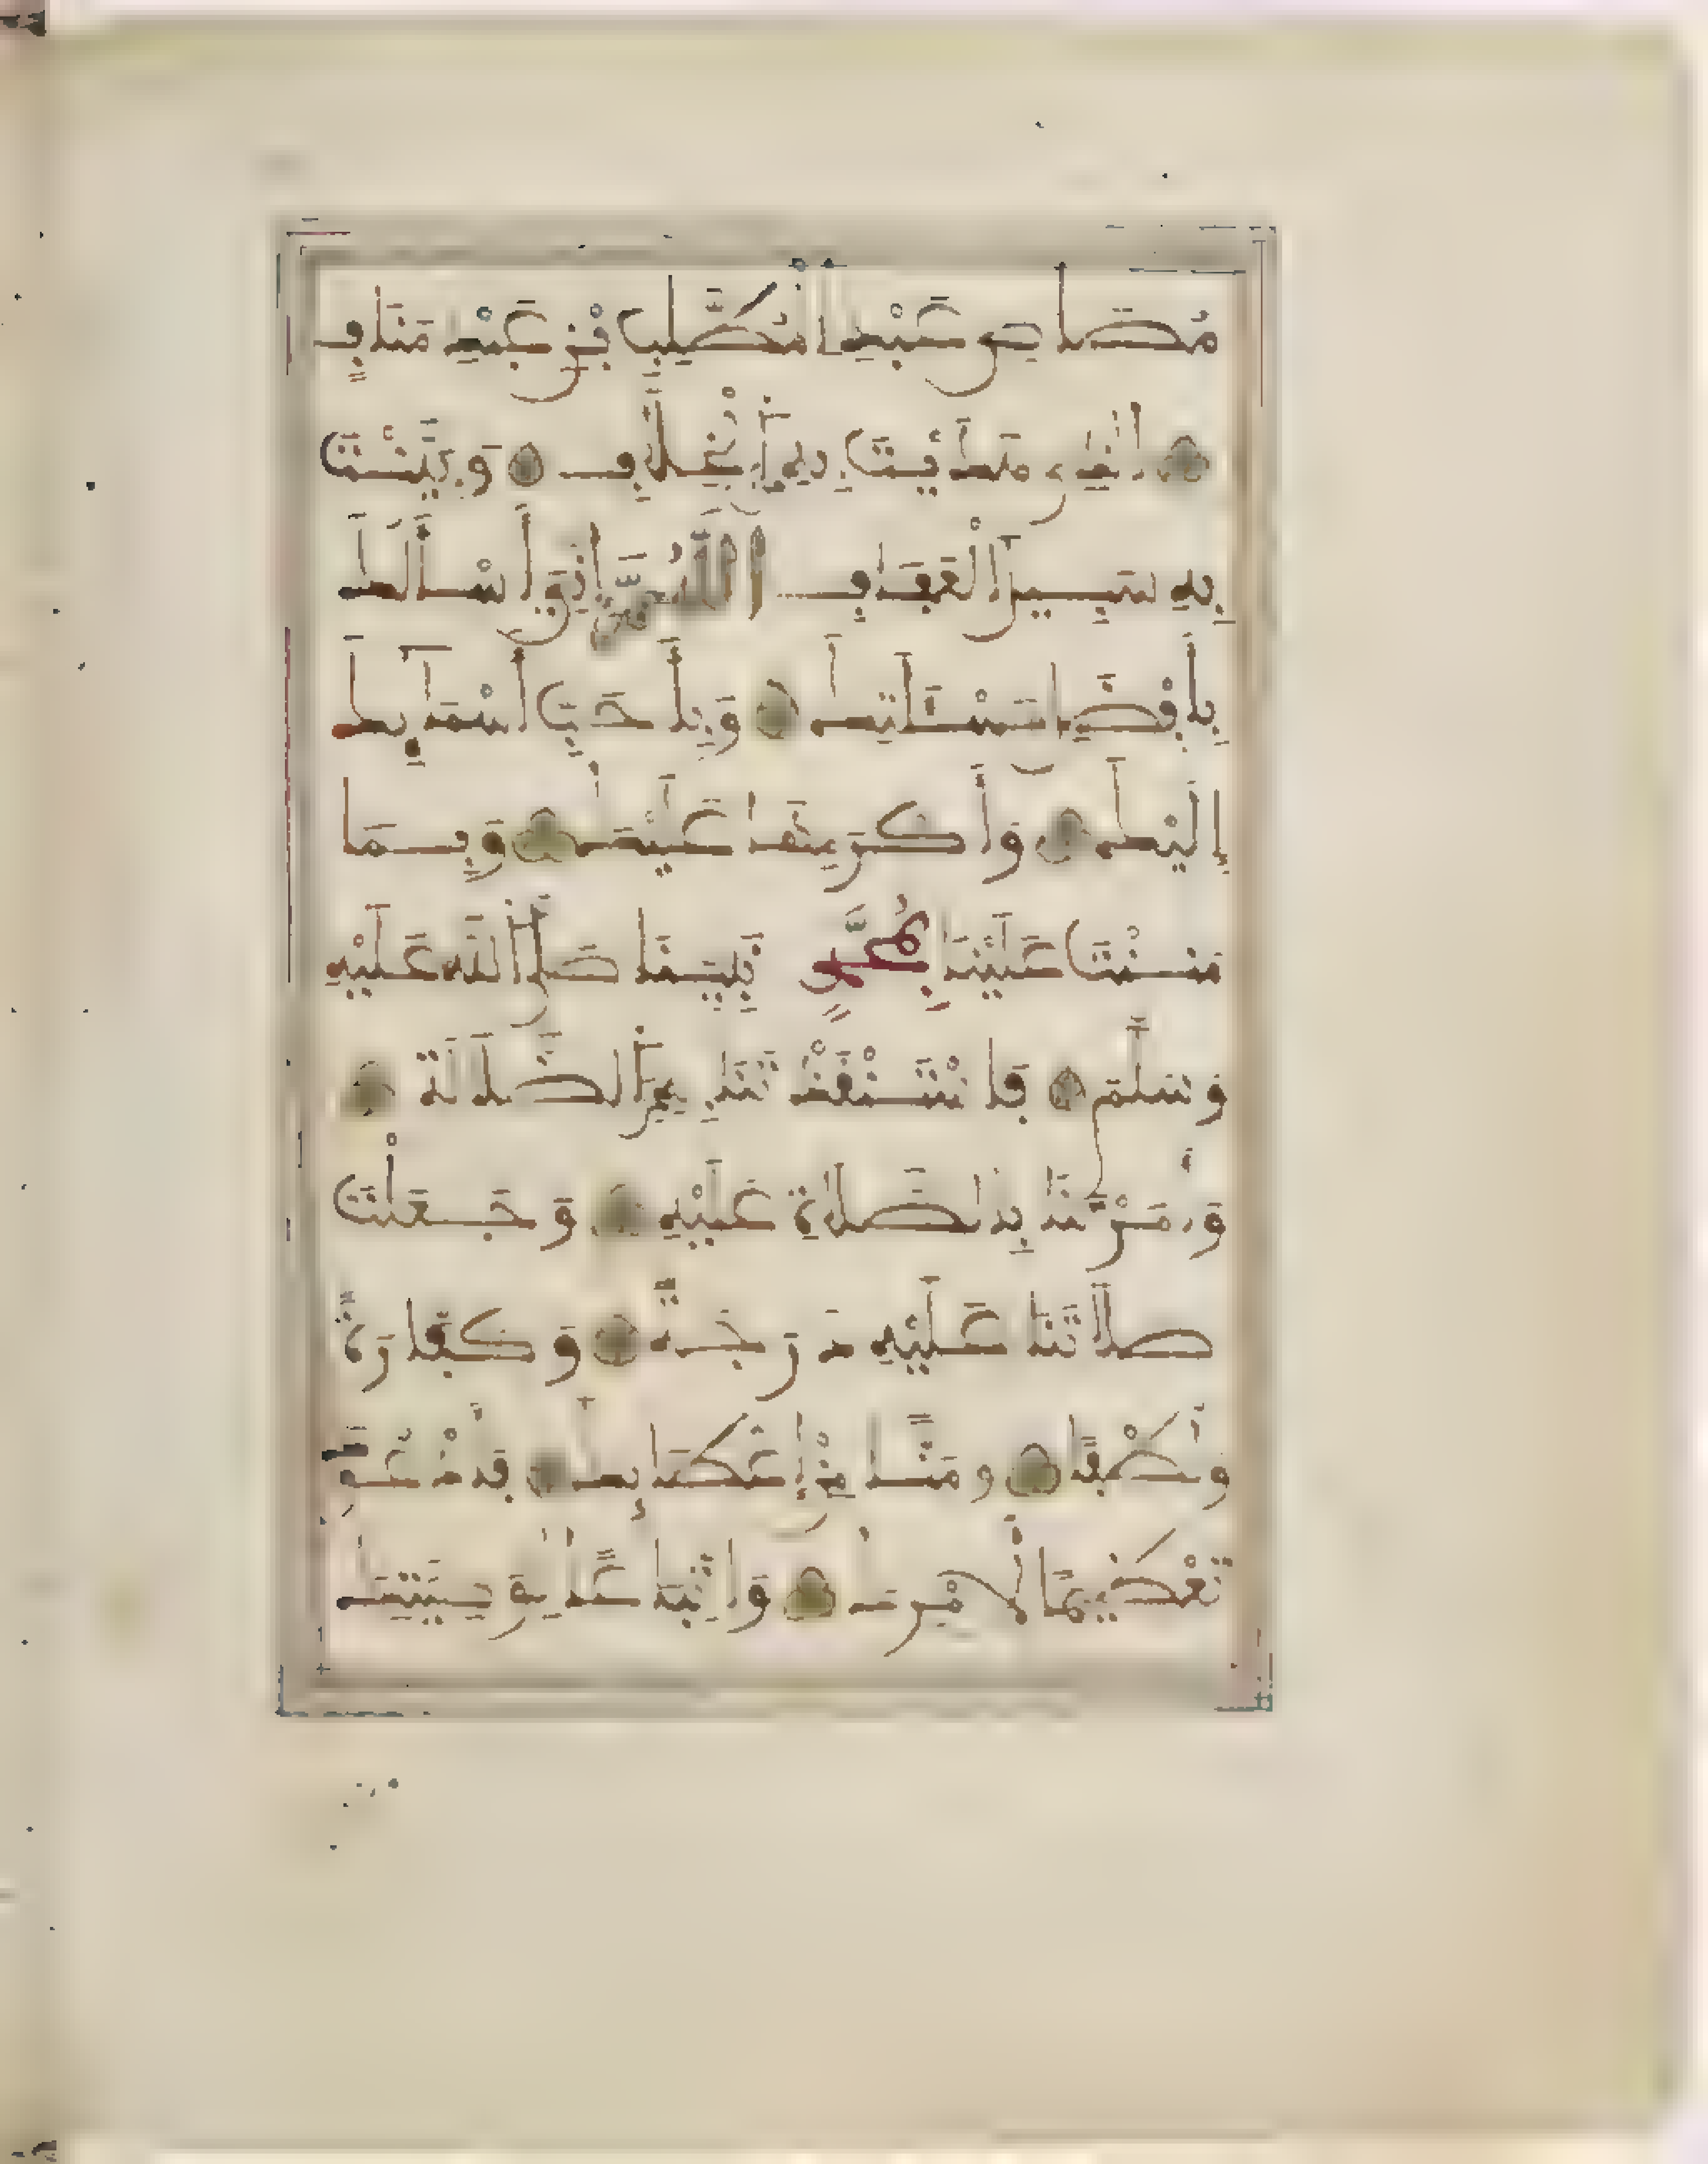 مُصَاصِ عَبْدِ الْمُطَّلِبِ بْنِ عَبْدِ مَنَافٍ
الَّذِي هَدَيْتَ بِهِ مِنَ الْخِلَافِ وَبَيَّنْتَ
بِهِ سَبِيلَ الْعَفَافِ اللَّهُمَّ إِنِّي أَسْأَلُكَ
بِأَفْضَلِ مَسْأَلَتِكَ وَبِأَحَبِّ أَسْمَائِكَ
إِلَيْكَ وَأَكْرَمِهَا عَلَيْكَ وَبِمَا
مَنَنْتَ عَلَيْنَا بِمُحَمَّدٍ نَبِيِّنَا صَلَّى اللَّهُ عَلَيْهِ
وَسَلَّمَ فَاسْتَنْقَذْتَنَا بِهِ مِنَ الضَّلَالَةِ
وَأَمَرْتَنَا بِالصَّلَاةِ عَلَيْهِ وَجَعَلْتَ
صَلَاتَنَا عَلَيْهِ دَرَجَةً وَكَفَّارَةً
وَلُطْفًا وَمَنًّا مِنْ إِعْطَائِكَ فَأَدْعُوكَ
تَعْظِيمًا لِأَمْرِكَ وَاتِّبَاعًا لِوَصِيَّتِكَ